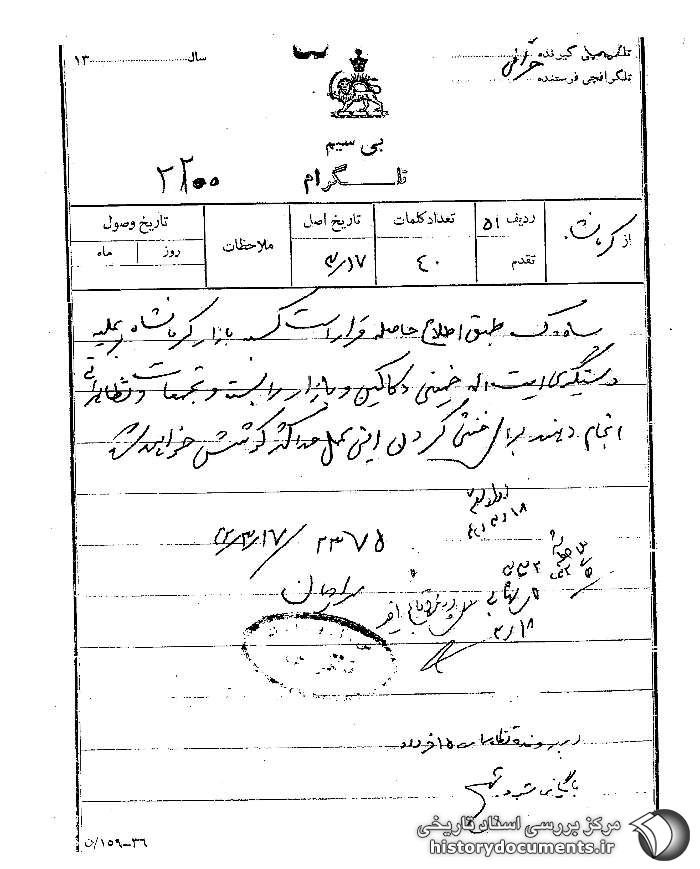 تلگرافچی گیرنده
تلگرافچی فرستنده
سال ۱۳
بی سیم
تلگرام
۲۲۰۰
از کرمانشاه
ردیف ۵۱
تقدم
تعداد کلمات
۴۰
تاریخ اصل
۳/۱۷
ملاحظات
تاریخ وصول
روز
ماه
ساواک طبق اطلاع حاصله قرار است کسبه بازار کرمانشاه بر علیه
دستگیری آیت اله خمینی دکاکین و بازار را بسته و تجمعات و تظاهراتی
انجام دهند برای خنثی کردن این عمل حداکثر کوشش خواهد شد
۲۳۷۵
۴۲/۳/۱۷
۳/۱۸
در پرونده تظاهرات ۱۵ خرداد
بایگانی شود
۳۶-۱۵۹/ن
مرکز بررسی اسناد تاریخی
historydocuments.ir